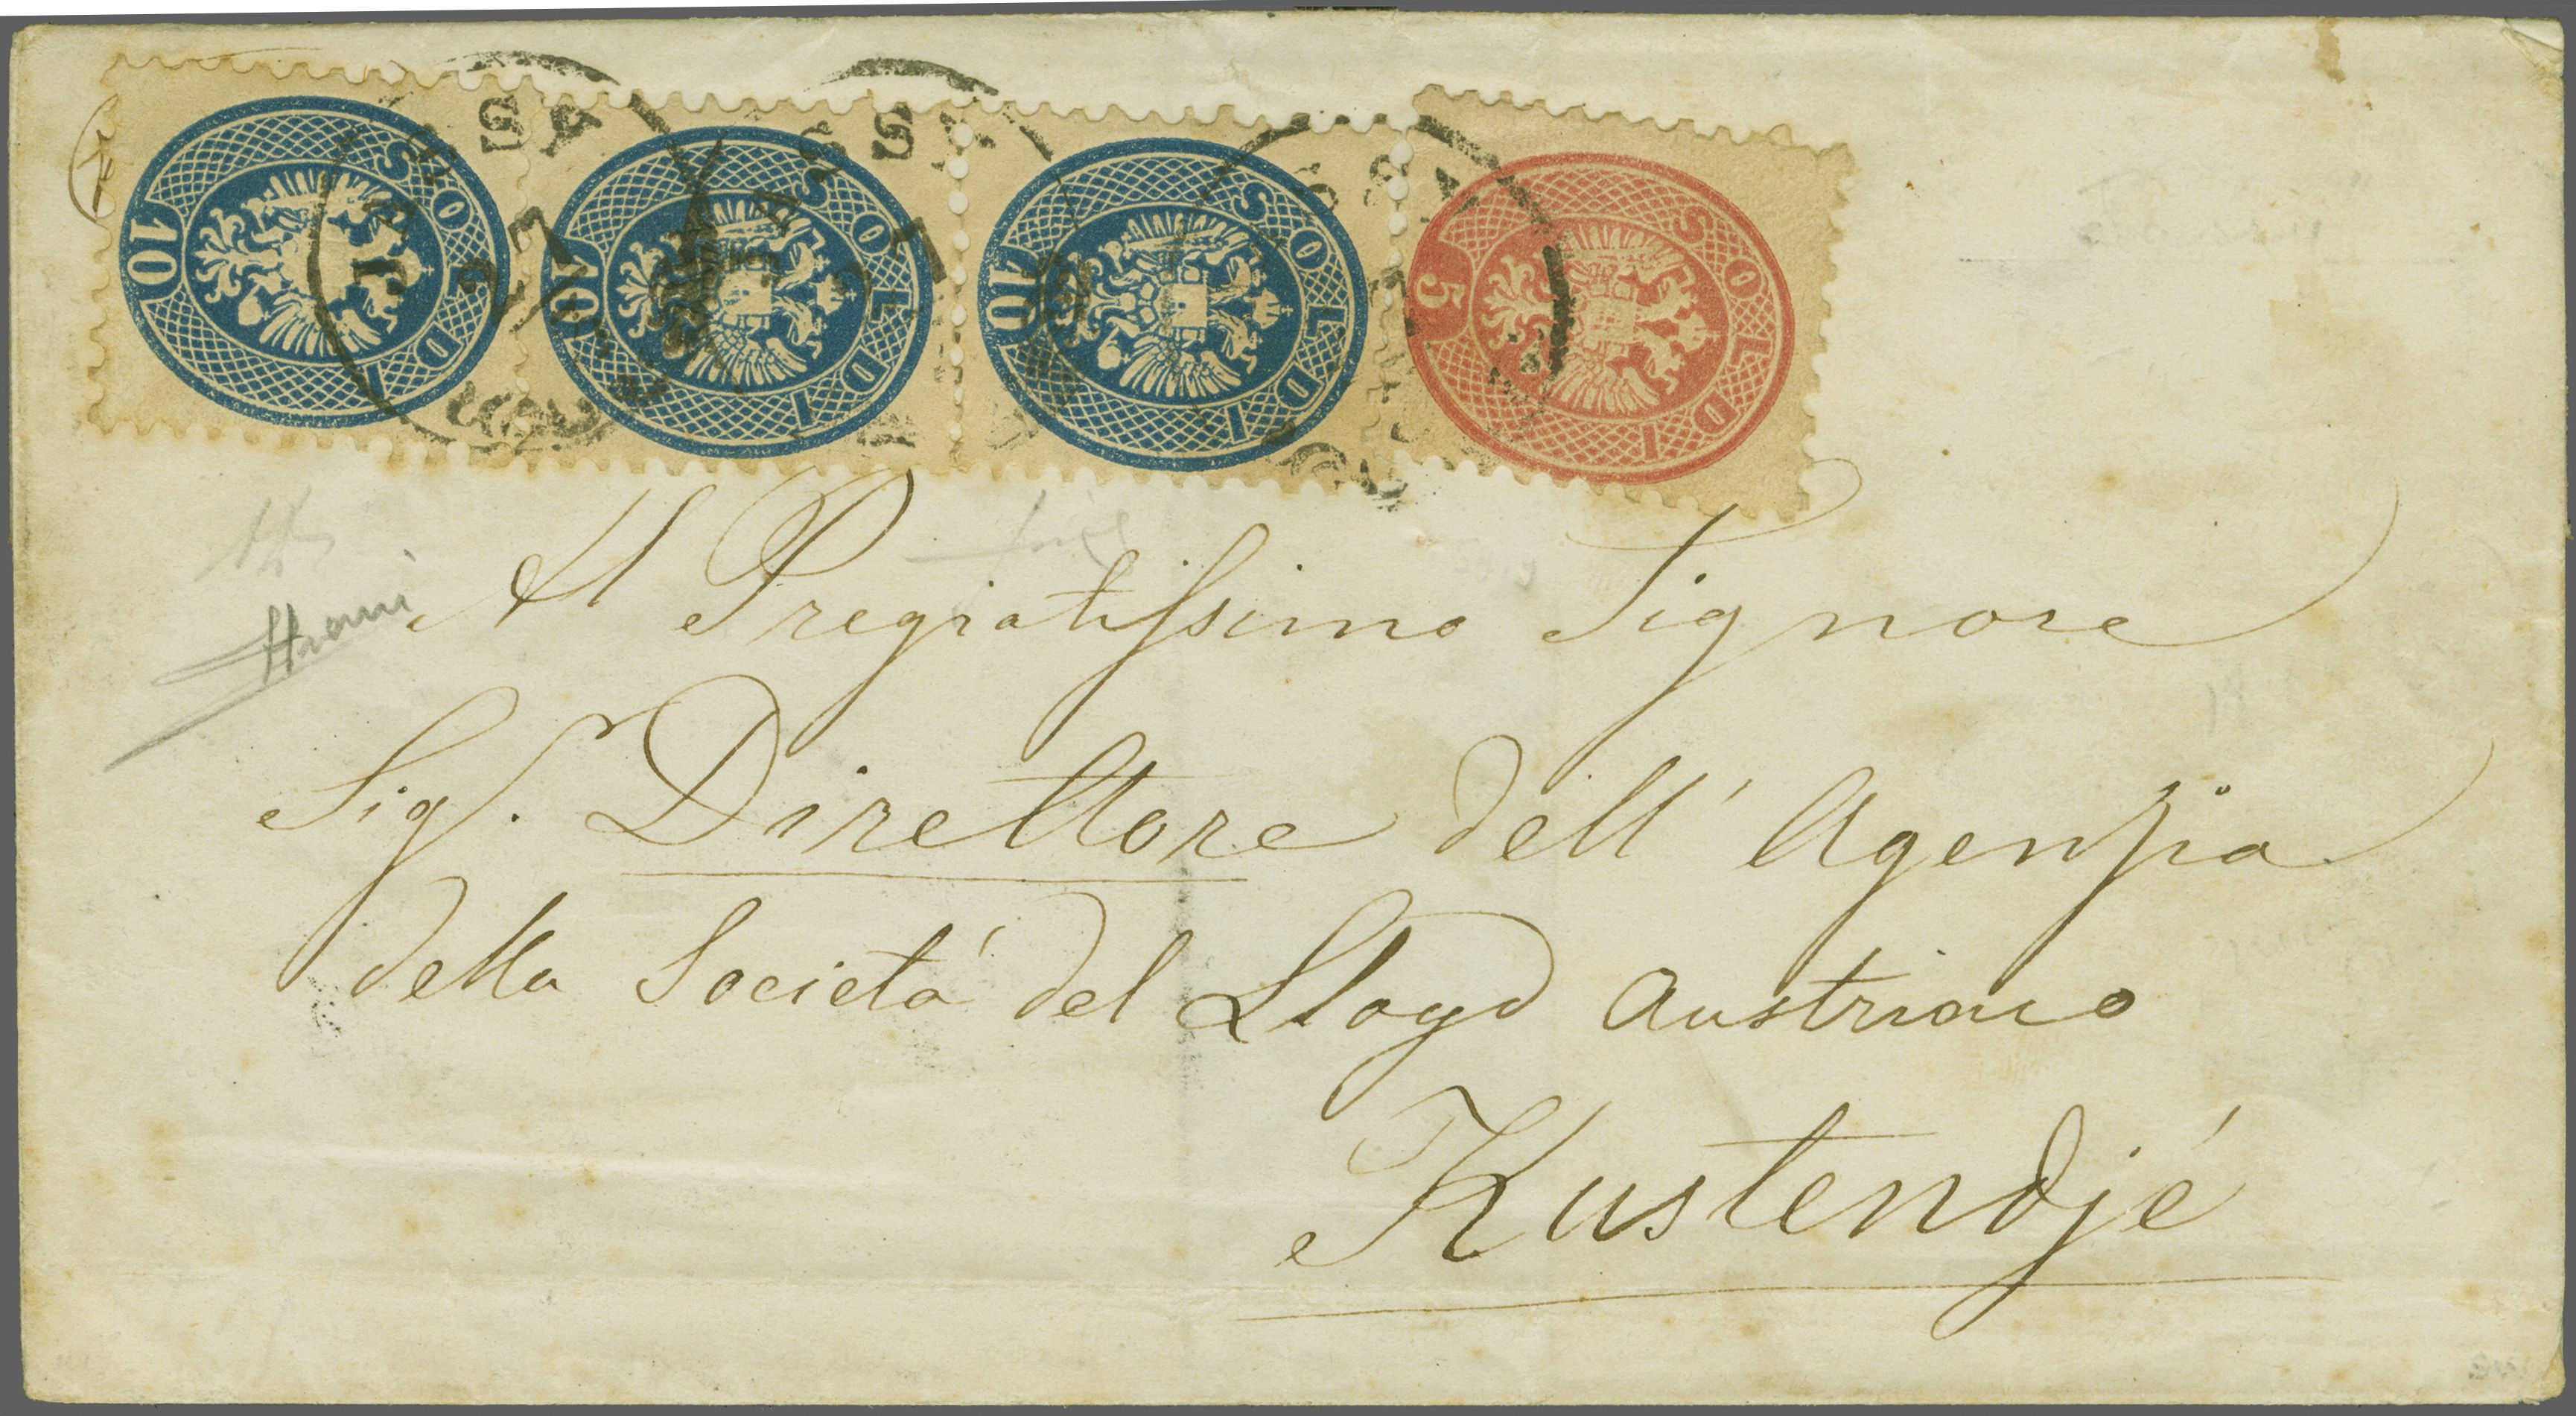 10 SOLDI
10 SOLDI
10 SOLDI
5 SOLDI
JASSY
27
Al Pregiatissimo Signore
Sigr. Direttore dell' Agenzia
della Societá del Lloyd Austriaco
Kustendjé